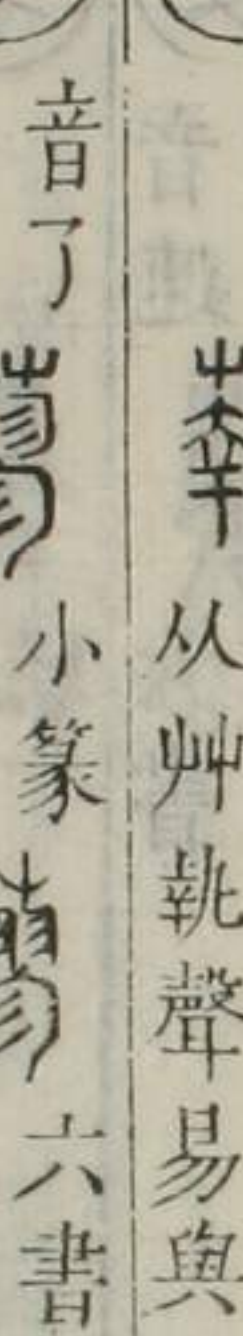 从艸執聲易與
音了 小篆 六書